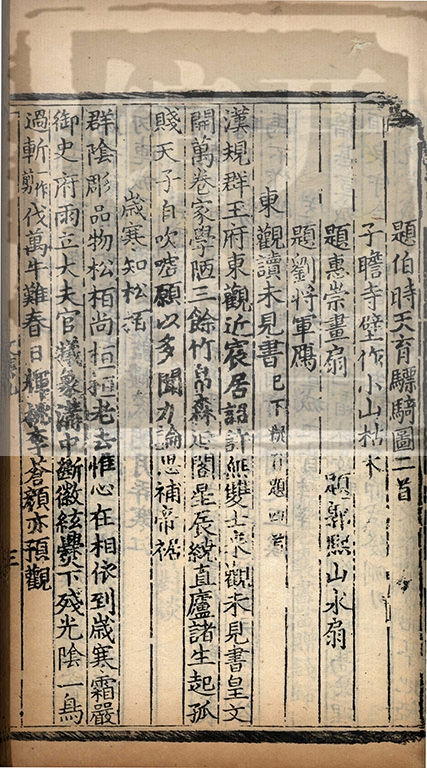 題伯時天育驃騎圖二首
子瞻寺壁作小山枯木
題惠崇畫扇 題郭熙山水扇
題劉將軍鴈
東觀讀未見書已下 題四首
漢規群玉府東觀近宸居詔許無雙士來觀未見書皇文
開萬卷家學陋三餘竹帛森延閣星辰繞直廬諸生起孤
賤天子自吹噓願以多聞力論思補帝裾
歲寒知松柏
群陰彫品物松柏尚桓桓老去惟心在相依到歲寒霜嚴
御史府雨立大夫官犧象溝中斷徽絃爨下殘光陰一鳥
過斬一作剪伐萬牛難春日輝桃李蒼顏亦預觀
三